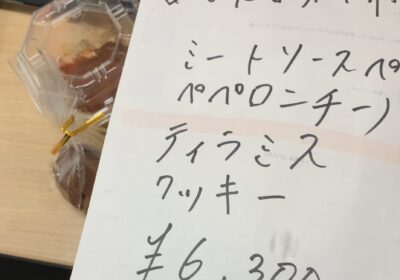 ミートソースペ
ペペロンチーノ
ティラミス
クッキー
¥6,300